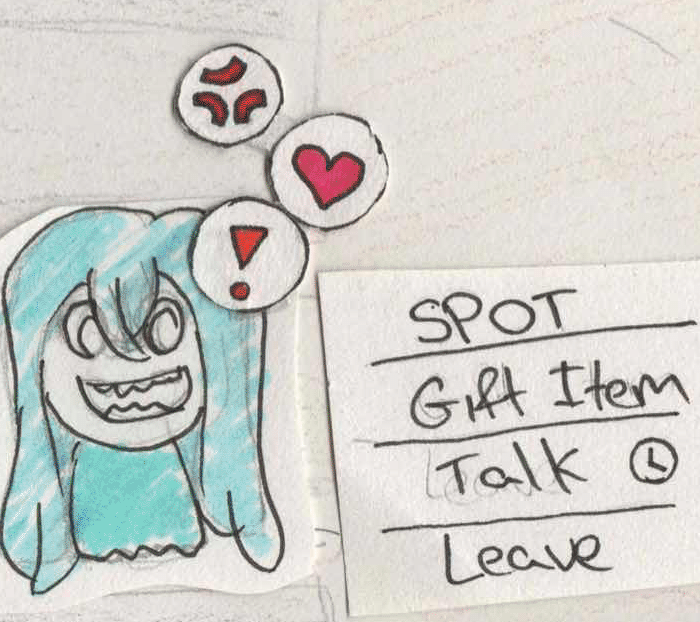 !
SPOT
Gift Item
Talk
Leave